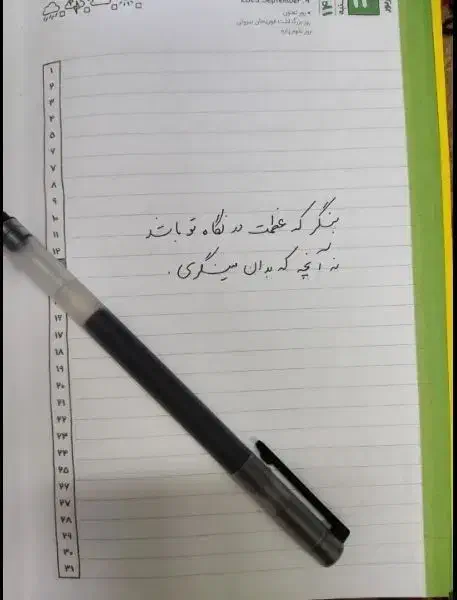 September
روز علوم پایه
۱
۲
۳
۴
۵
۶
۷
۸
۹
۱۰
۱۱
۱۲
بنگر که عظمت در نگاه تو باشد
نه آنچه که بدان مینگری .
۱۶
۱۷
۱۸
۱۹
۲۰
۲۱
۲۲
۲۳
۲۴
۲۵
۲۶
۲۷
۲۸
۲۹
۳۰
۳۱